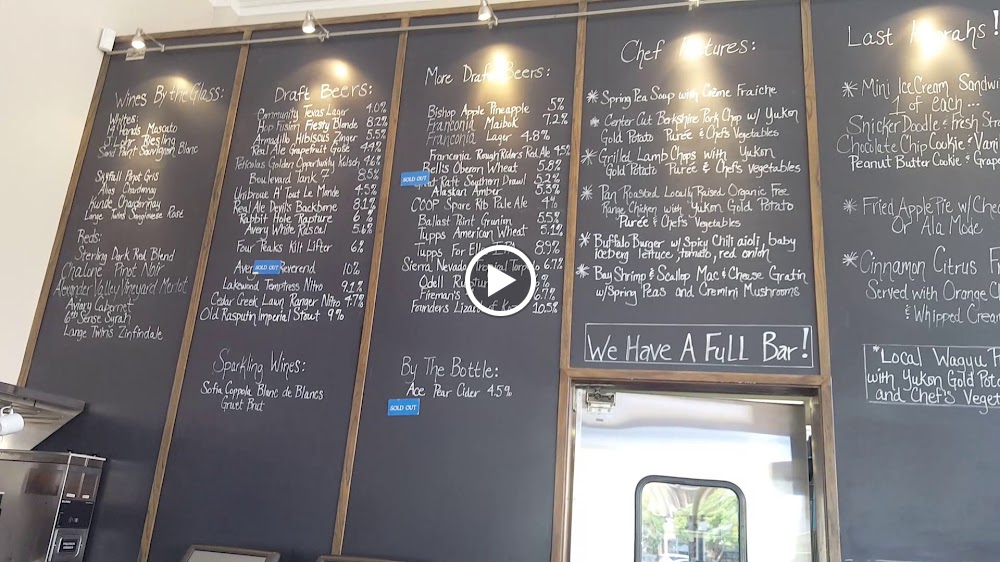 Wines By the Glass:
Whites:
14 Hands Moscato
St Lolar Riesling
Sand Point Sauvignon Blanc
Skyfall Pinot Gris
Alias Chardonnay
Kunde Chardonnay
Lange Twins Sangiovese Rosé
Reds:
Sterling Dark Red Blend
Chalone Pinot Noir
Alexander Valley Vineyard Merlot
Aviary Cabernet
6th Sense Syrah
Lange Twins Zinfindale
Draft Beers:
Community Texas Lager 4.0%
Hop Fusion Fresty Blonde 8.2%
Armadillo Hibiscus Zinger 5.5%
Real Ale Grapefruit Gose 4.4%
Peticolas Golden Opportunity Kolsch 4.6%
Boulevard Tank 7 8.5%
Unibroue A' Tout Le Monde 4.5%
Real Ale Devil's Backbone 8.1%
Rabbit Hole Rapture 6%
Avery White Rascal 5.6%
Four Peaks Kilt Lifter 6%
SOLD OUT
Reverend 10%
Lakewood Temptress Nitro 9.1%
Cedar Creek Lawn Ranger Nitro 4.7%
Old Rasputin Imperial Stout 9%
Sparkling Wines:
Sofia Coppola Blanc de Blancs
Gruet Brut
More Draft Beers:
Bishop Apple Pineapple 5%
Franconia Maibok 7.2%
Franconia Lager 4.8%
Franconia Rough Riders Red Ale 4.5%
Bells Oberon Wheat 5.8%
SOLD OUT
Raft Southern Drawl 5.2%
Alaskan Amber 5.3%
COOP Spare Rib Pale Ale 4%
Ballast Point Grunion 5.5%
Tupps American Wheat 5.1%
Tupps For Ella IPA 8.9%
Sierra Nevada Torpedo 6.7%
Odell
Fireman's 6.7%
Founder's Lizard of 10.5%
By The Bottle:
Ace Pear Cider 4.5%
SOLD OUT
Chef :
* Spring Pea Soup with Crème Fraiche
* Center Cut Berkshire Pork Chop w/ Yukon
Gold Potato Purée & Chefs Vegetables
* Grilled Lamb Chops with Yukon
Gold Potato Purée & Chef's Vegetables
* Pan Roasted Locally Raised Organic Free
Range Chicken with Yukon Gold Potato
Purée & Chef's Vegetables
* Buffalo Burger w/ Spicy Chili aioli, baby
iceberg lettuce, tomato, red onion
* Bay Shrimp & Scallop Mac & Cheese Gratin
w/ Spring Peas and Cremini Mushrooms
We Have A Full Bar!
Last !
* Mini Ice Cream Sandwi
1 of each...
Snicker Doodle & Fresh Stra
Chocolate Chip Cookie & Vani
Peanut Butter Cookie & Grape
* Fried Apple Pie w/ Che
Or Ala Mode
* Cinnamon Citrus F
Served with Orange C
& Whipped Crea
*Local Wagyu F
with Yukon Gold Pota
and Chef's Veget